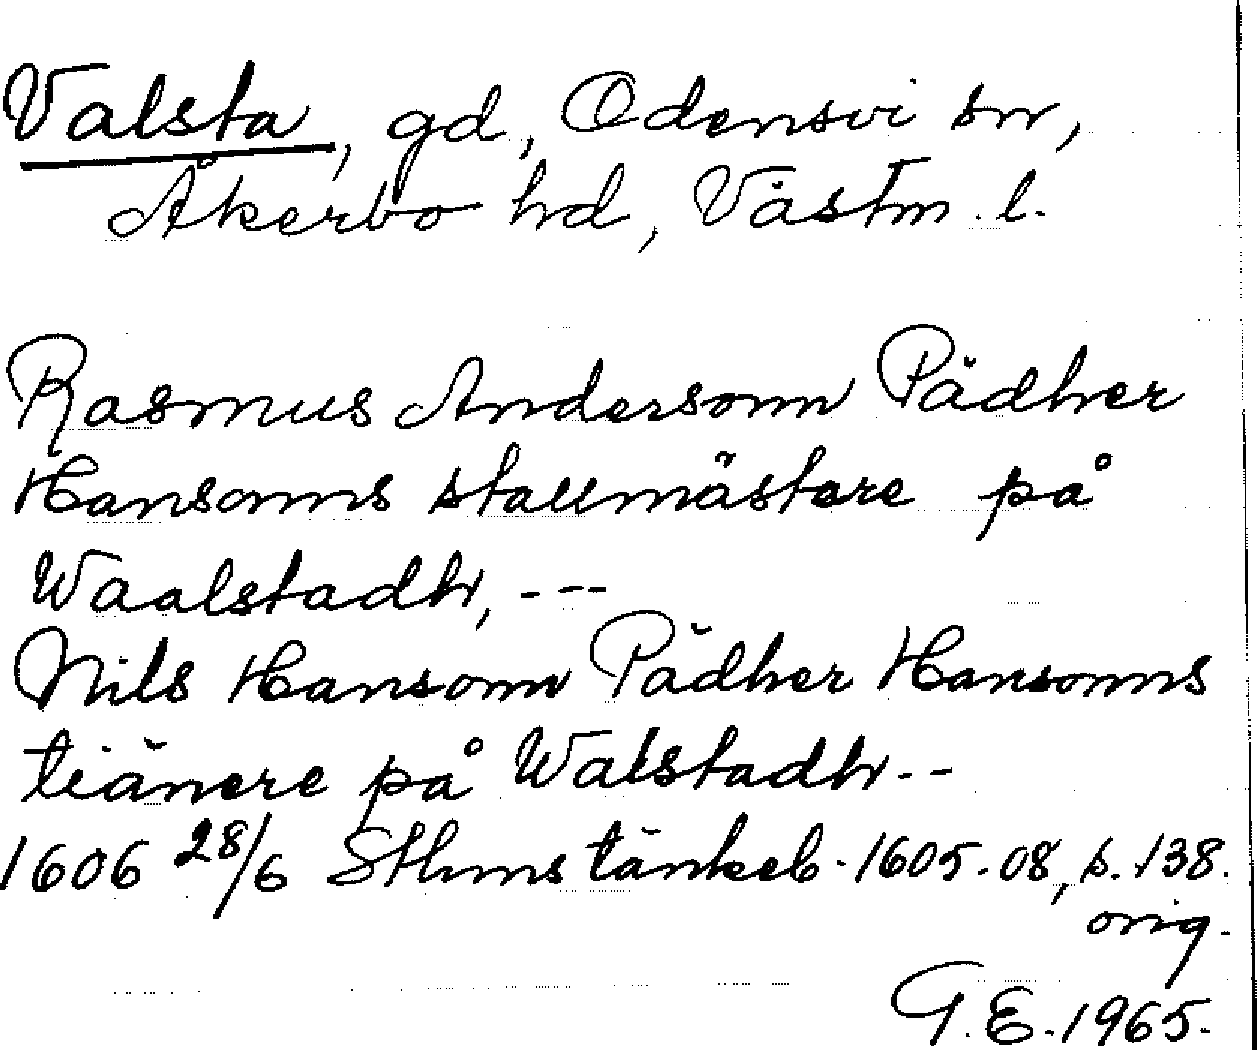 Valsta, gd, Odensvi sn,
Åkerbo hd, Västm. l.
Rasmus Andersonn Pädher
Hansonns stallmästare på
Waalstadh, ---
Nils Hansonn Pädher Hansonns
tiänere på Walstadh --
1606 28/6 Sthms tänkeb. 1605-08, s. 138.
orig.
G. E. 1965.